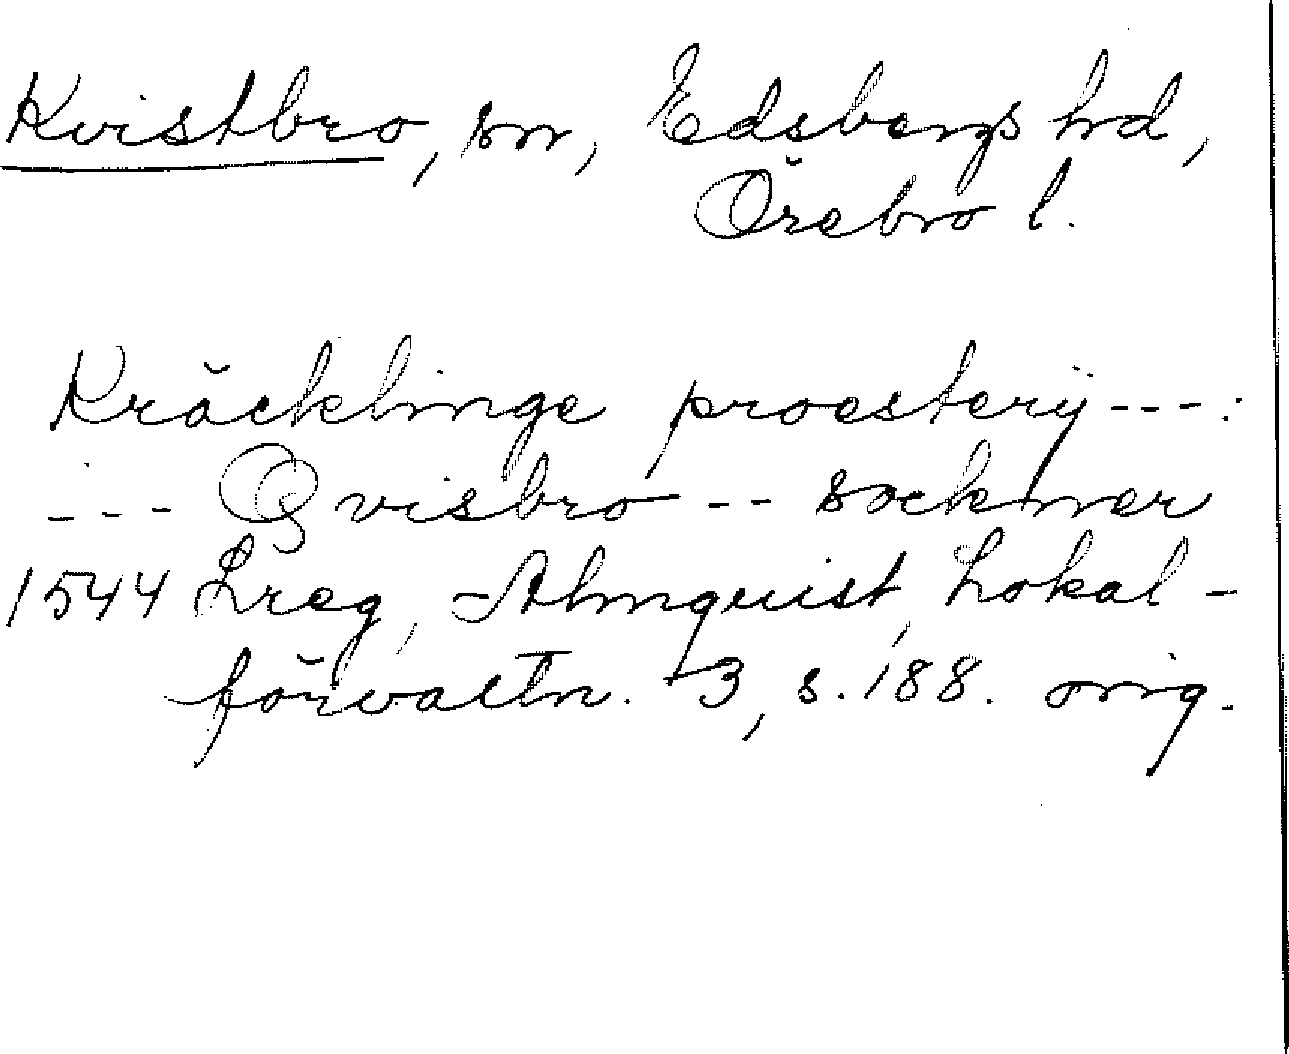 Kvistbro, sn, Edsbergs hd,
Örebro l.
Kräcklinge proesterij ---:
--- Qvisbro -- socknner
1544 Lreg, Almquist, Lokal-
förvaltn. 3, s. 188. orig.